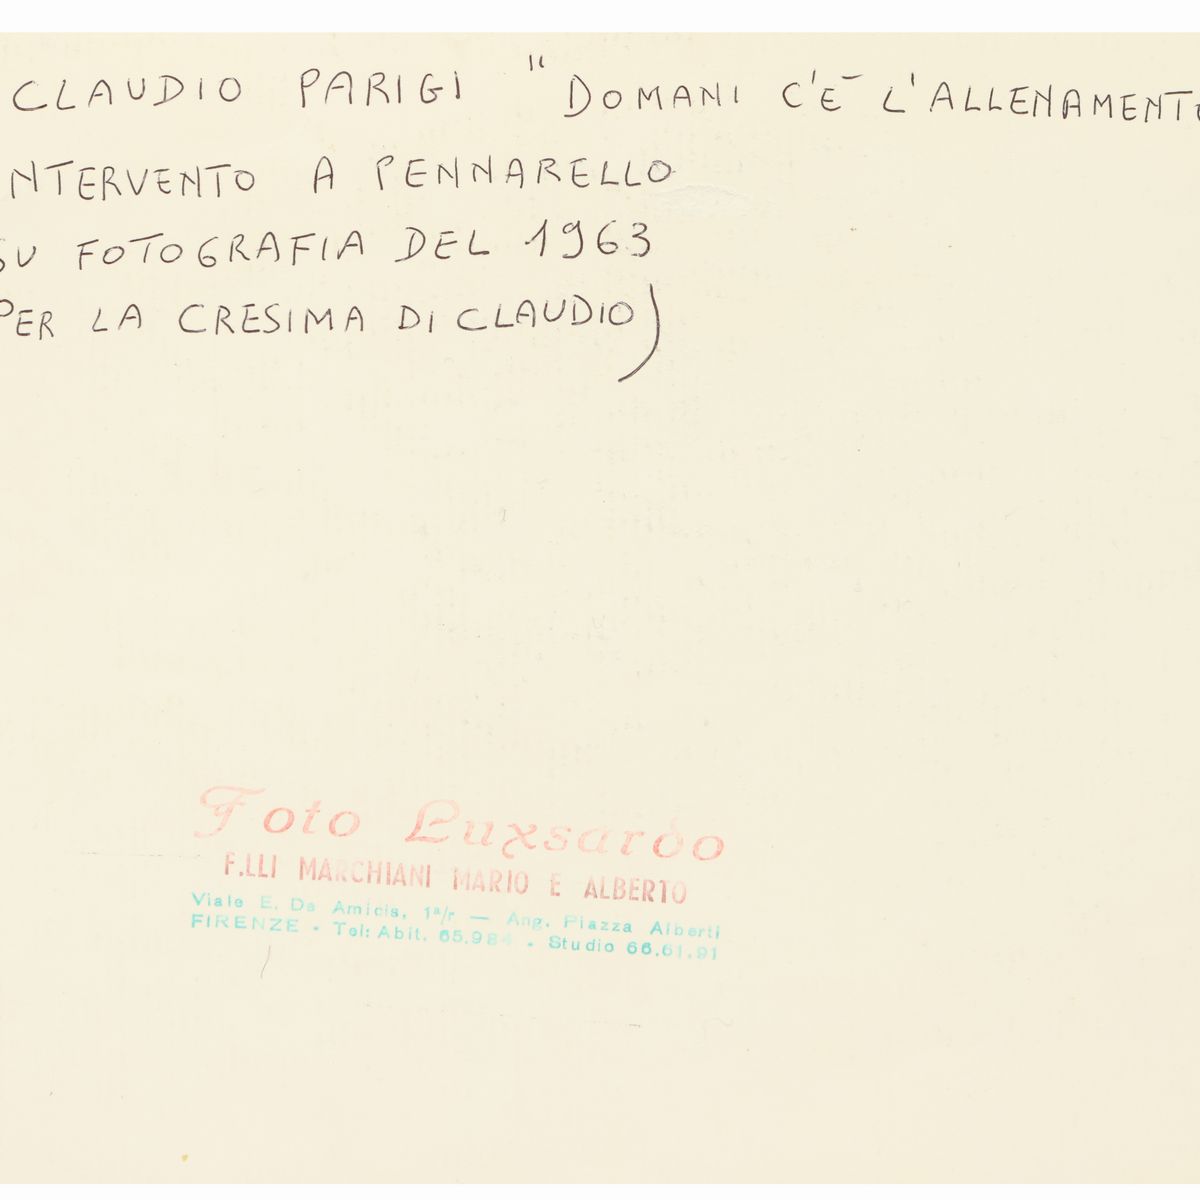 CLAUDIO PARIGI "DOMANI C'È L'ALLENAMENTO
INTERVENTO A PENNARELLO
SU FOTOGRAFIA DEL 1963
PER LA CRESIMA DI CLAUDIO)
Foto Luxsardo
F.LLI MARCHIANI MARIO E ALBERTO
Viale E. De Amicis, 1ª/r — Ang. Piazza Alberti
FIRENZE • Tel: Abit. 65.984 • Studio 66.61.91